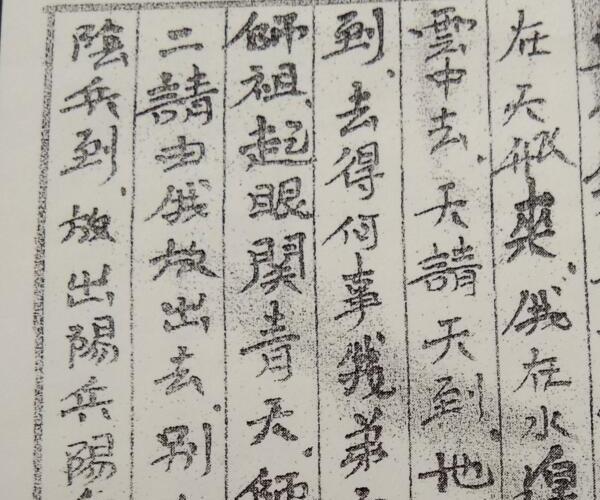 在天爽、俄在水
雲中去、天請天到、地
到、去得何事俄弟
師祖、起眼関青天、師
二請由俄放出去、别
陰兵到、放出陽兵陽